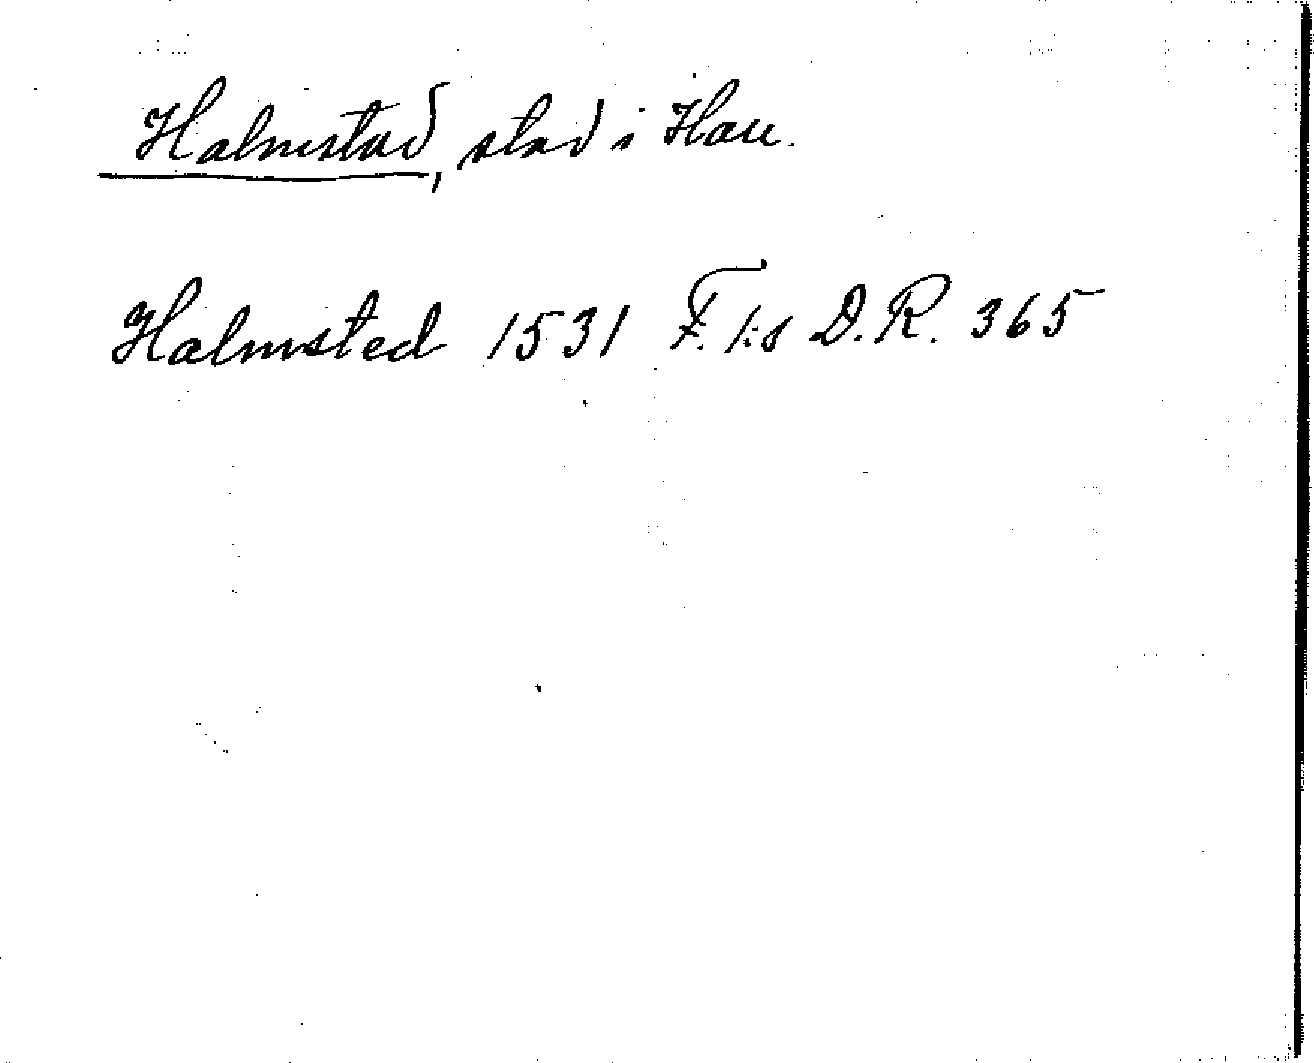 Halmstad, stad i Hall.
Halmsted 1531 F. I:s D.R. 365